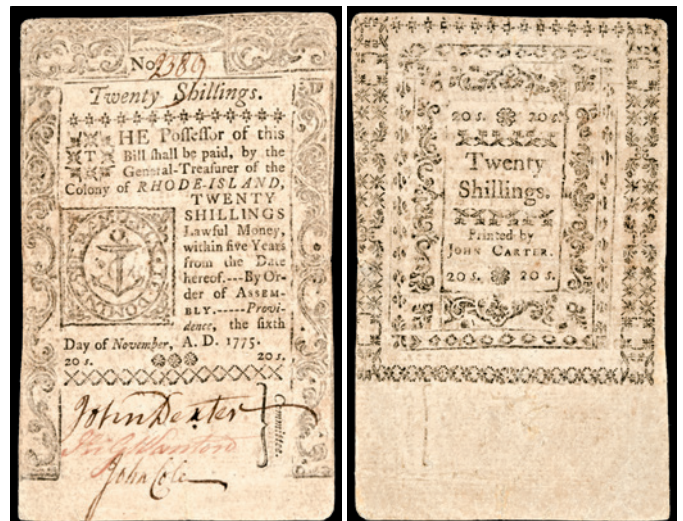 No 2389
Twenty Shillings.
THE Poſſeſſor of this
Bill ſhall be paid, by the
General-Treaſurer of the
Colony of RHODE-ISLAND,
TWENTY
SHILLINGS
Lawful Money,
within five Years
from the Date
hereof.---By Or-
der of ASSEM-
BLY.-----Provi-
dence, the ſixth
Day of November, A. D. 1775.
20 s. 20 s.
John Dexter
John Cole
Committee.
20 s. 20 s.
Twenty
Shillings.
Printed by
JOHN CARTER.
20 s. 20 s.